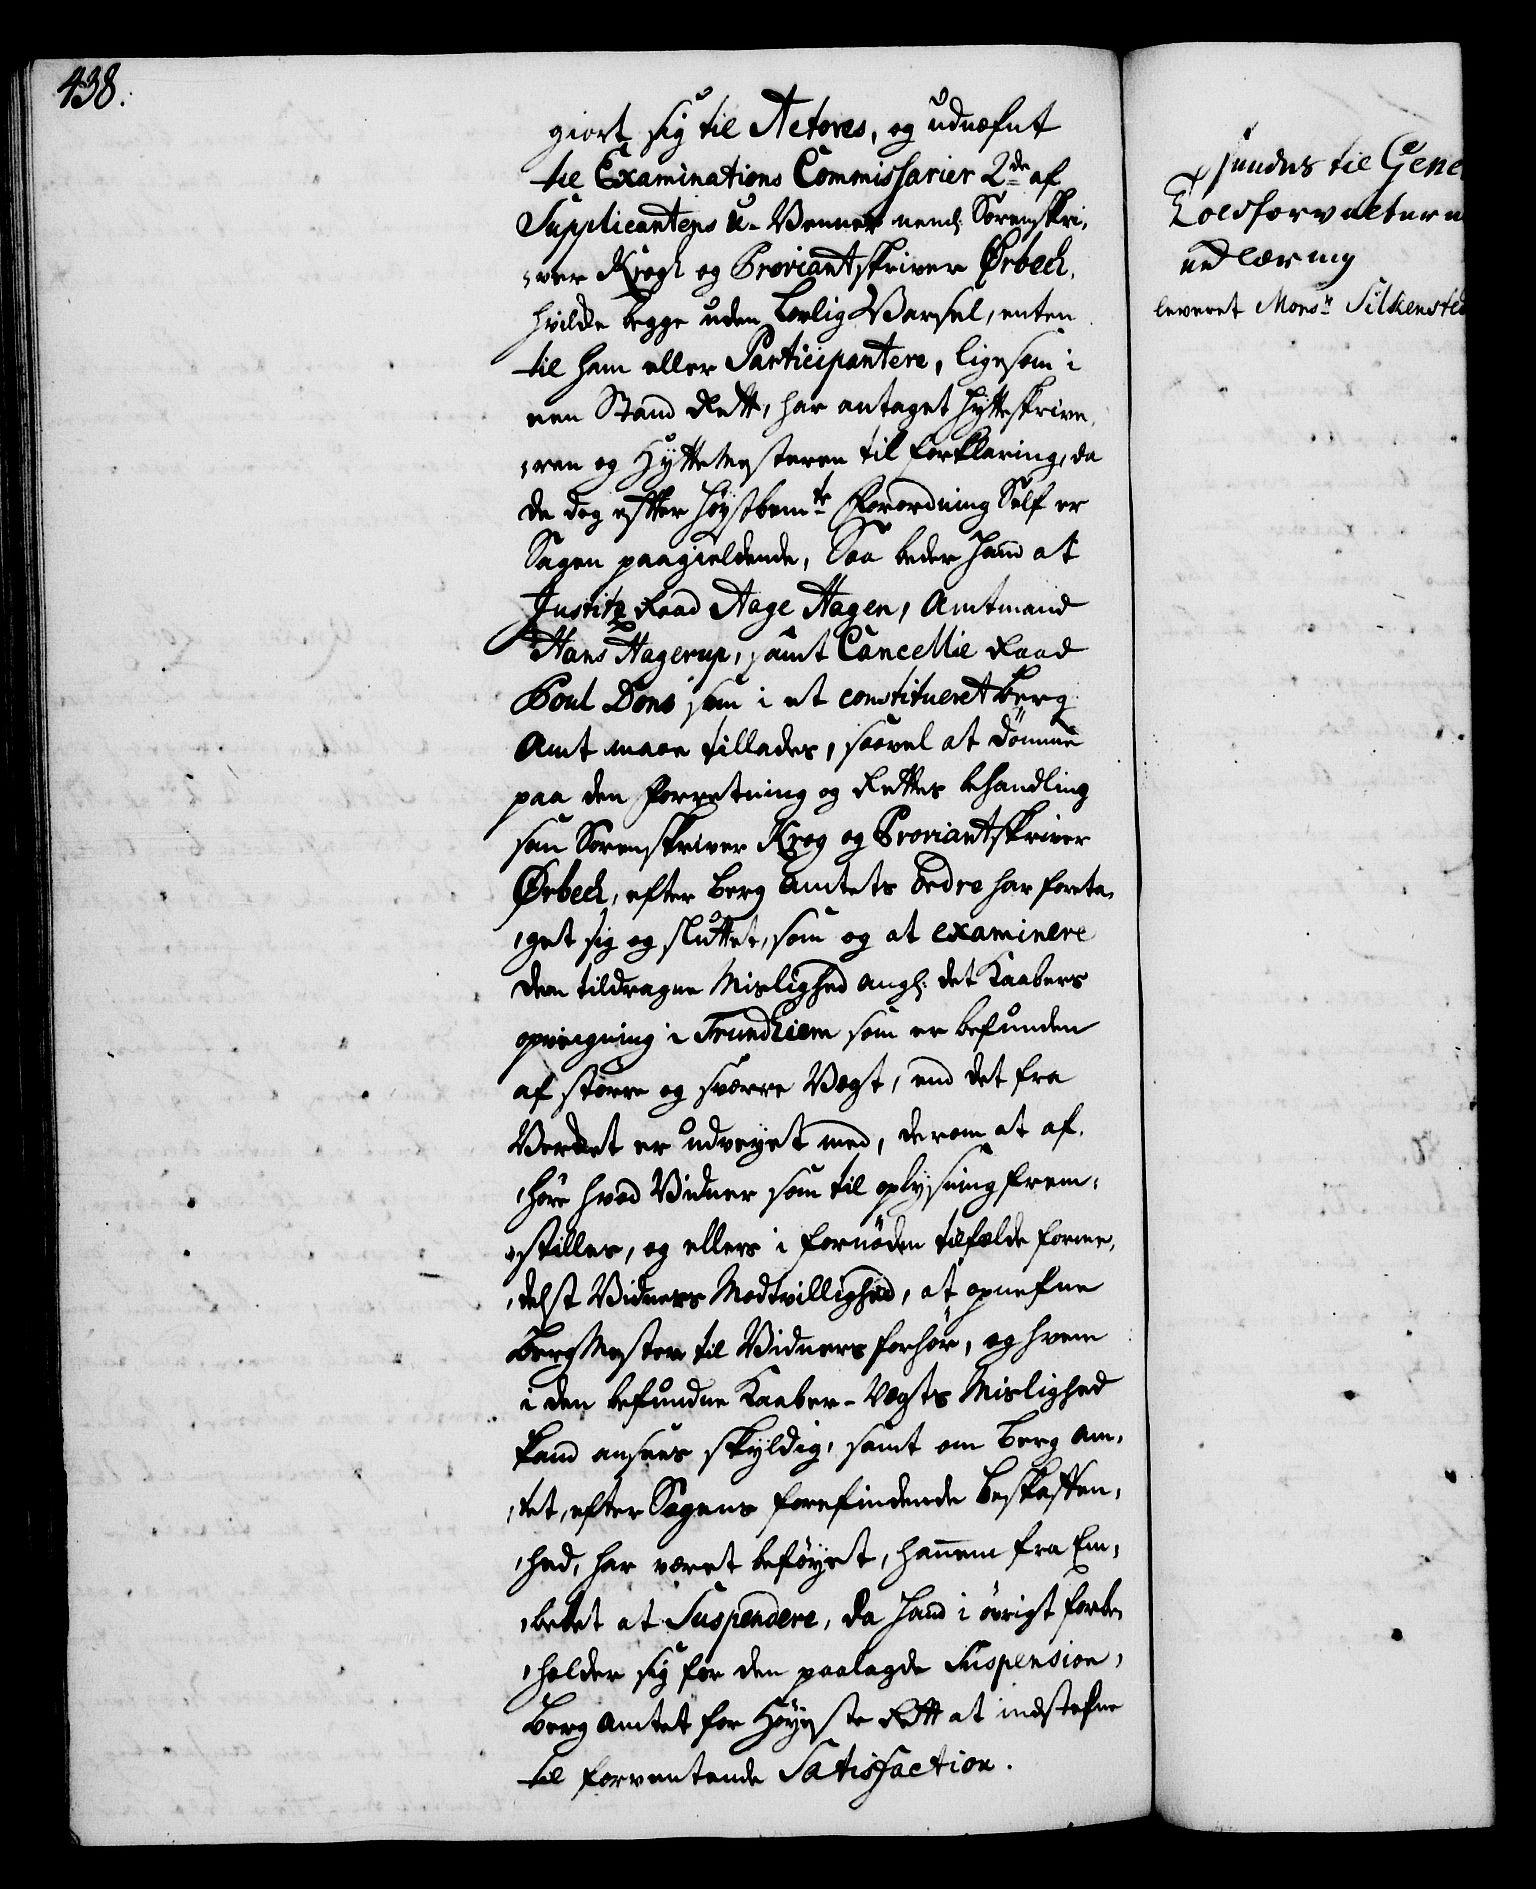 438.
giort sig til Actores, og udnæfnt
til Examinations Commissarier 2de af
Supplicantens U-Venner nemlig Sorenskri,
,ver Krogh og Proviantskriver Ørbech,
hvilke begge uden Lovlig Varsel, enten
til ham eller Participantere, ligesom i
een Stand Rett, har antaget Hytteskrive,
,ren og HytteMesteren til forklaring, da
de dog efter høystbemte Forordning Self er
Sagen paagieldende, Saa beder Hand at
Justitz Raad Aage Hagen, Amtmand
Hans Hagerup, samt Cancellie Raad
Poul Dons som i et constitueret Berg
Amt maae tillades, saavel at dömme
paa den Forretning og Rettes behandling
som Sorenskriver Krog og Proviantskriver
Ørbech, efter Berg Amtets Ordre har foreta,
,get sig og sluttet, som og at examinere
den tildragne Mislighed angl: det Kaabers
opveigning i Trundhiem som er befunden
af större og sværre Vægt, end det fra
Verket er udveyet med, derom at af,
,höre hvad Vidner som til oplysning frem,
,stilles, og ellers i fornöden tilfælde forme,
,delst Vidners Modtvillighed, at opnefne
BergMester til Vidners forhör, og hvem
i den befundne Kaaber-Vægts Mislighed
kand ansees skyldig, samt om Berg Am,
,tet, efter Sagens forefindende beskaffen,
,hed, har været beföyet, hannem fra Em,
,bedet at Suspendere, da Hand i övrigt forbe,
,holder sig for den paalagde Suspension,
Berg Amtet for Höyeste Rett at indstefne
til forventende Satisfaction.
sendes til Gene
Toldforvalteren
erklæring
leveret Monsr Silkensted